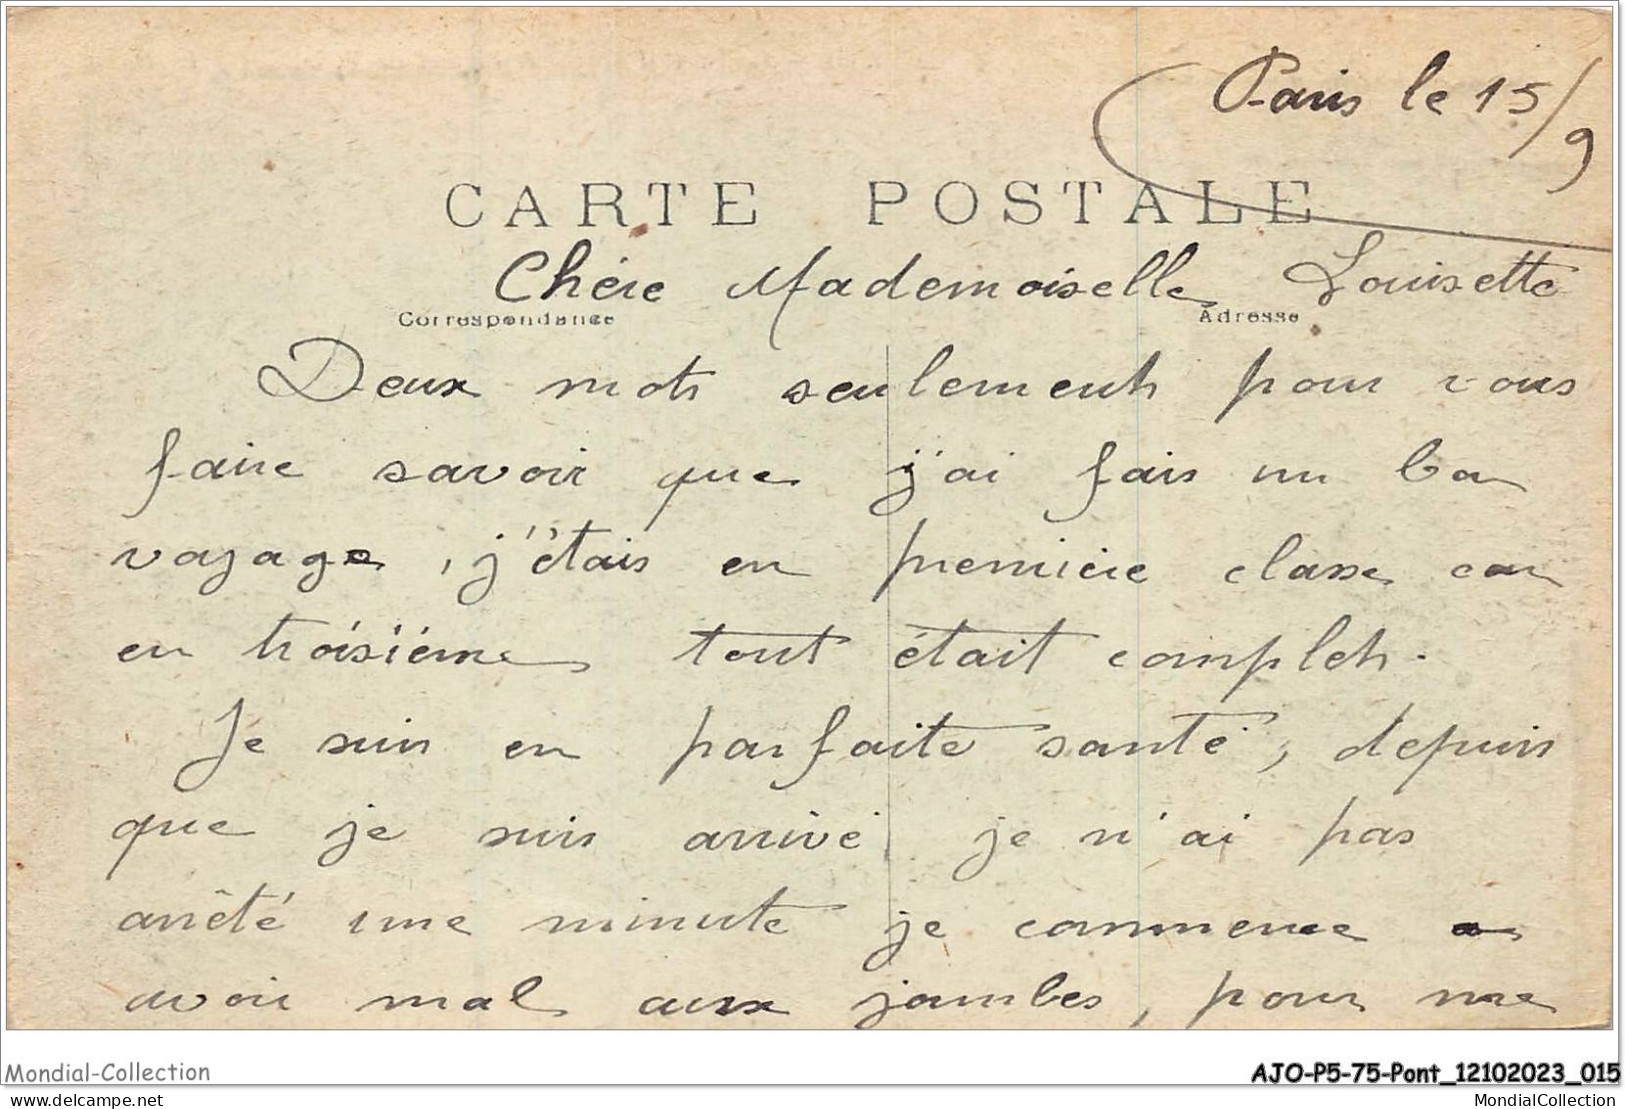 Paris le 15/9
CARTE POSTALE
Chére Mademoiselle Louisette
Correspondance Adresse
Deux mots seulement pour vous
faire savoir que j'ai fais un bon
voyage, j'étais en premiére classe car
en troisiéme tout était complet.
Je suis en parfaite santé, depuis
que je suis arrivé je n'ai pas
arrêté une minute je commence a
avoir mal aux jambes, pour me
Mondial-Collection
AJO-P5-75-Pont_12102023_015
delcampe.net
MondialCollection